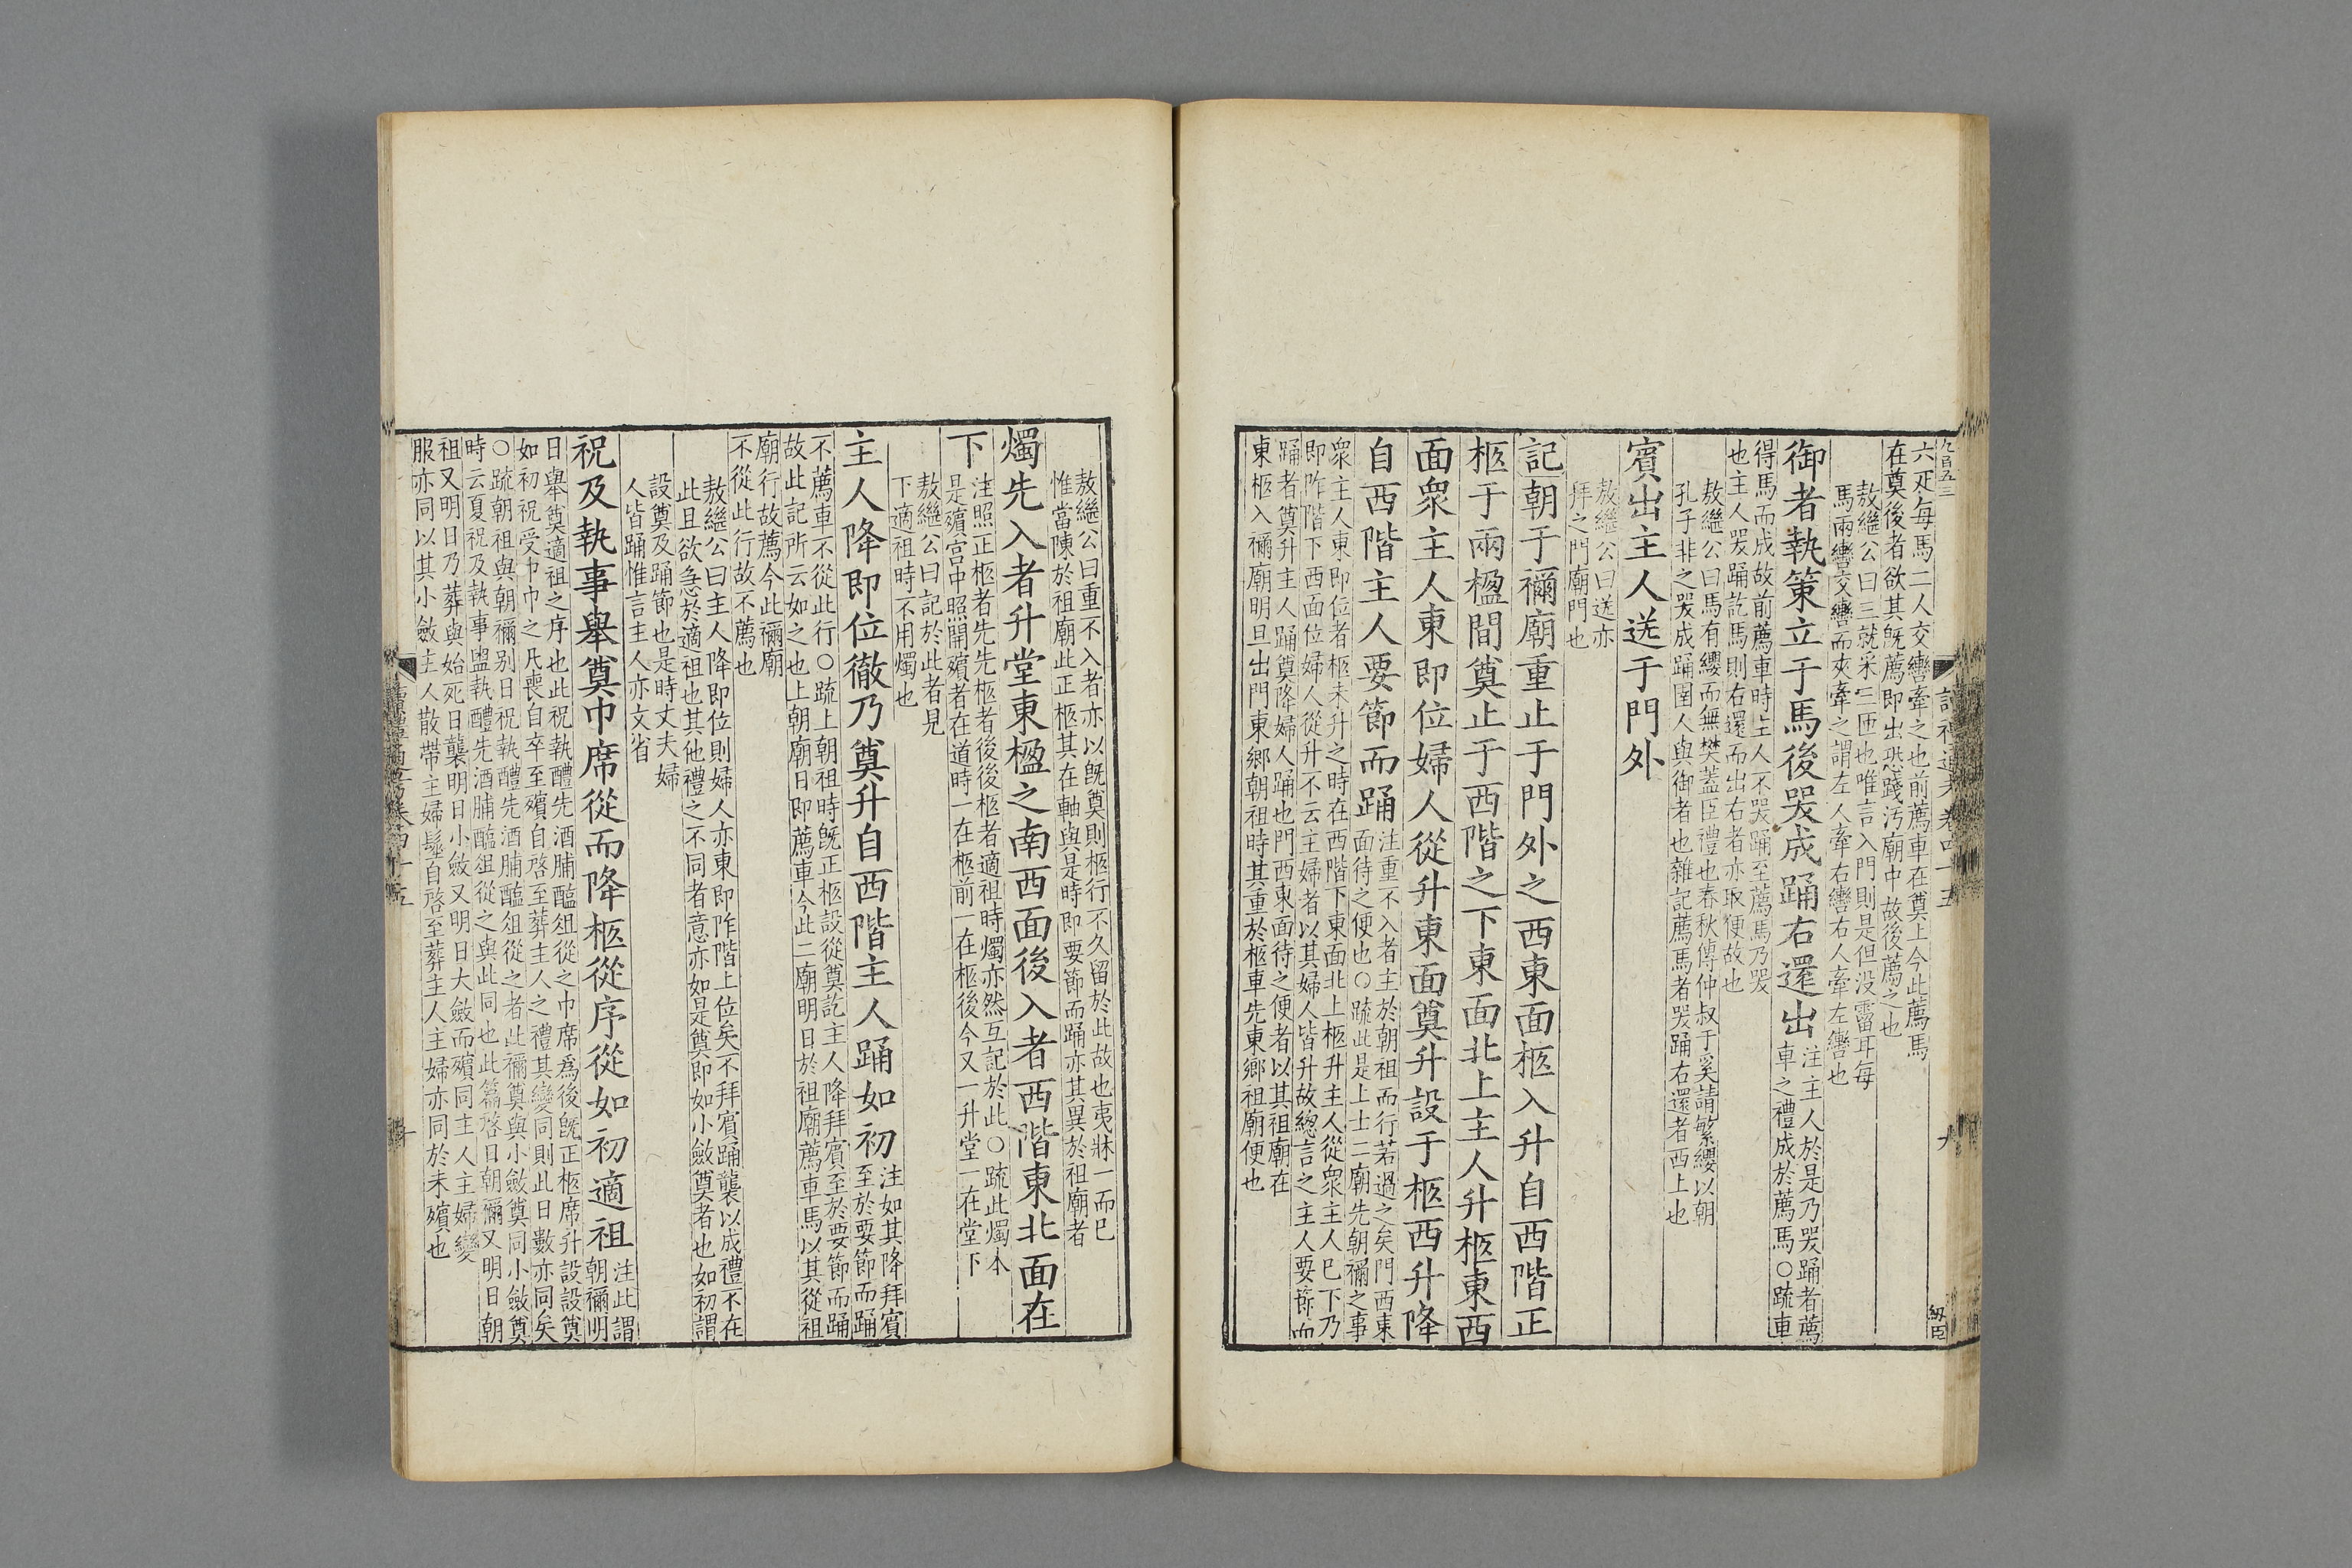 六疋每馬二人交轡牽之也前薦車在奠上今此薦馬
在奠後者欲其旣薦即出恐踐汚廟中故後薦之也
敖繼公曰三就采三匝也唯言入門則是但没霤耳每
馬兩轡交轡而夾牽之謂左人牽右轡右人牽左轡也
御者執策立于馬後哭成踊右還出
注主人於是乃哭踊者薦
車之禮成於薦馬○疏車
得馬而成故前薦車時主人不哭踊至薦馬乃哭
也主人哭踊訖馬則右還而出右者亦取便故也
敖繼公曰馬有纓而無樊蓋臣禮也春秋傳仲叔于奚請繁纓以朝
孔子非之哭成踊圉人與御者也雜記薦馬者哭踊右還者西上也
賓出主人送于門外
敖繼公曰送亦
拜之門廟門也
記朝于禰廟重止于門外之西東面柩入升自西階正
柩于兩楹間奠止于西階之下東面北上主人升柩東西
面衆主人東即位婦人從升東面奠升設于柩西升降
自西階主人要節而踊
注重不入者主於朝祖而行若過之矣門西東
面待之便也○疏此是上士二廟先朝禰之事
衆主人東即位者柩未升之時在西階下東面北上柩升主人從衆主人已下乃
即阼階下西面位婦人從升不云主婦者以其婦人皆升故總言之主人要節而
踊者奠升主人踊奠降婦人踊也門西東面待之便者以其祖廟在
東柩入禰廟明旦出門東鄉朝祖時其重於柩車先東鄉祖廟便也
敖繼公曰重不入者亦以旣奠則柩行不久留於此故也夷牀一而已
惟當陳於祖廟此正柩其在軸與是時即要節而踊亦其異於祖廟者
燭先入者升堂東楹之南西面後入者西階東北面在
下
注照正柩者先先柩者後後柩者適祖時燭亦然互記於此○疏此燭本
是殯宮中照開殯者在道時一在柩前一在柩後今又一升堂一在堂下
敖繼公曰記於此者見
下適祖時不用燭也
主人降即位徹乃奠升自西階主人踊如初
注如其降拜賓
至於要節而踊
不薦車不從此行○疏上朝祖時旣正柩設從奠訖主人降拜賓至於要節而踊
故此記所云如之也上朝廟日即薦車今此二廟明日於祖廟薦車馬以其從祖
廟行故薦今此禰廟
不從此行故不薦也
敖繼公曰主人降即位則婦人亦東即阼階上位矣不拜賓踊襲以成禮不在
此且欲急於適祖也其他禮之不同者意亦如是奠即如小斂奠者也如初謂
設奠及踊節也是時丈夫婦
人皆踊惟言主人亦文省
祝及執事舉奠巾席從而降柩從序從如初適祖
注此謂
朝禰明
日舉奠適祖之序也此祝執醴先酒脯醢俎從之巾席爲後旣正柩席升設設奠
如初祝受巾巾之凡喪自卒至殯自啓至葬主人之禮其變同則此日數亦同矣
○疏朝祖與朝禰别日祝執醴先酒脯醢俎從之者此禰奠與小斂奠同小斂奠
時云夏祝及執事盥執醴先酒脯醢俎從之與此同也此篇啓日朝禰又明日朝
祖又明日乃葬與始死日襲明日小斂又明日大斂而殯同主人主婦變
服亦同以其小斂主人散帶主婦髽自啓至葬主人主婦亦同於未殯也